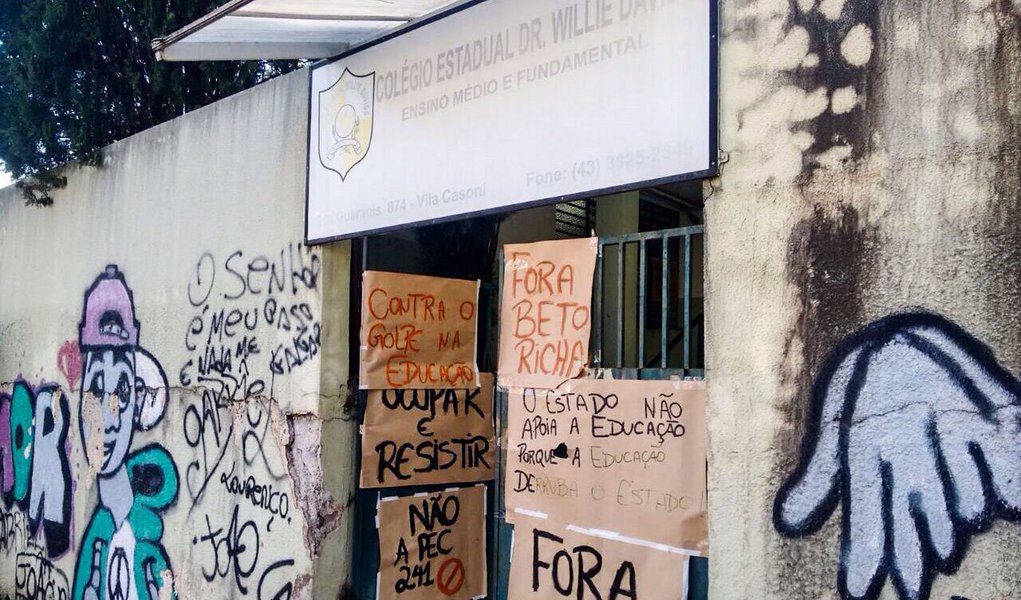 COLÉGIO ESTADUAL DR. WILLIE DAVI
ENSINO MÉDIO E FUNDAMENTAL
Guaranis 874 - Vila Casoni
Fone: (43) 3325-23
O SENHOR
É MEU PASTOR
E NADA ME
LOURENÇO.
JOÃO
JOÃO
CONTRA O
GOLPE NA
EDUCAÇÃO
FORA
BETO
RICHA
OCUPAR
E
RESISTIR
O ESTADO NÃO
APOIA A EDUCAÇÃO
PORQUE A EDUCAÇÃO
DERRUBA O ESTADO!
NÃO
A PEC
241
FORA